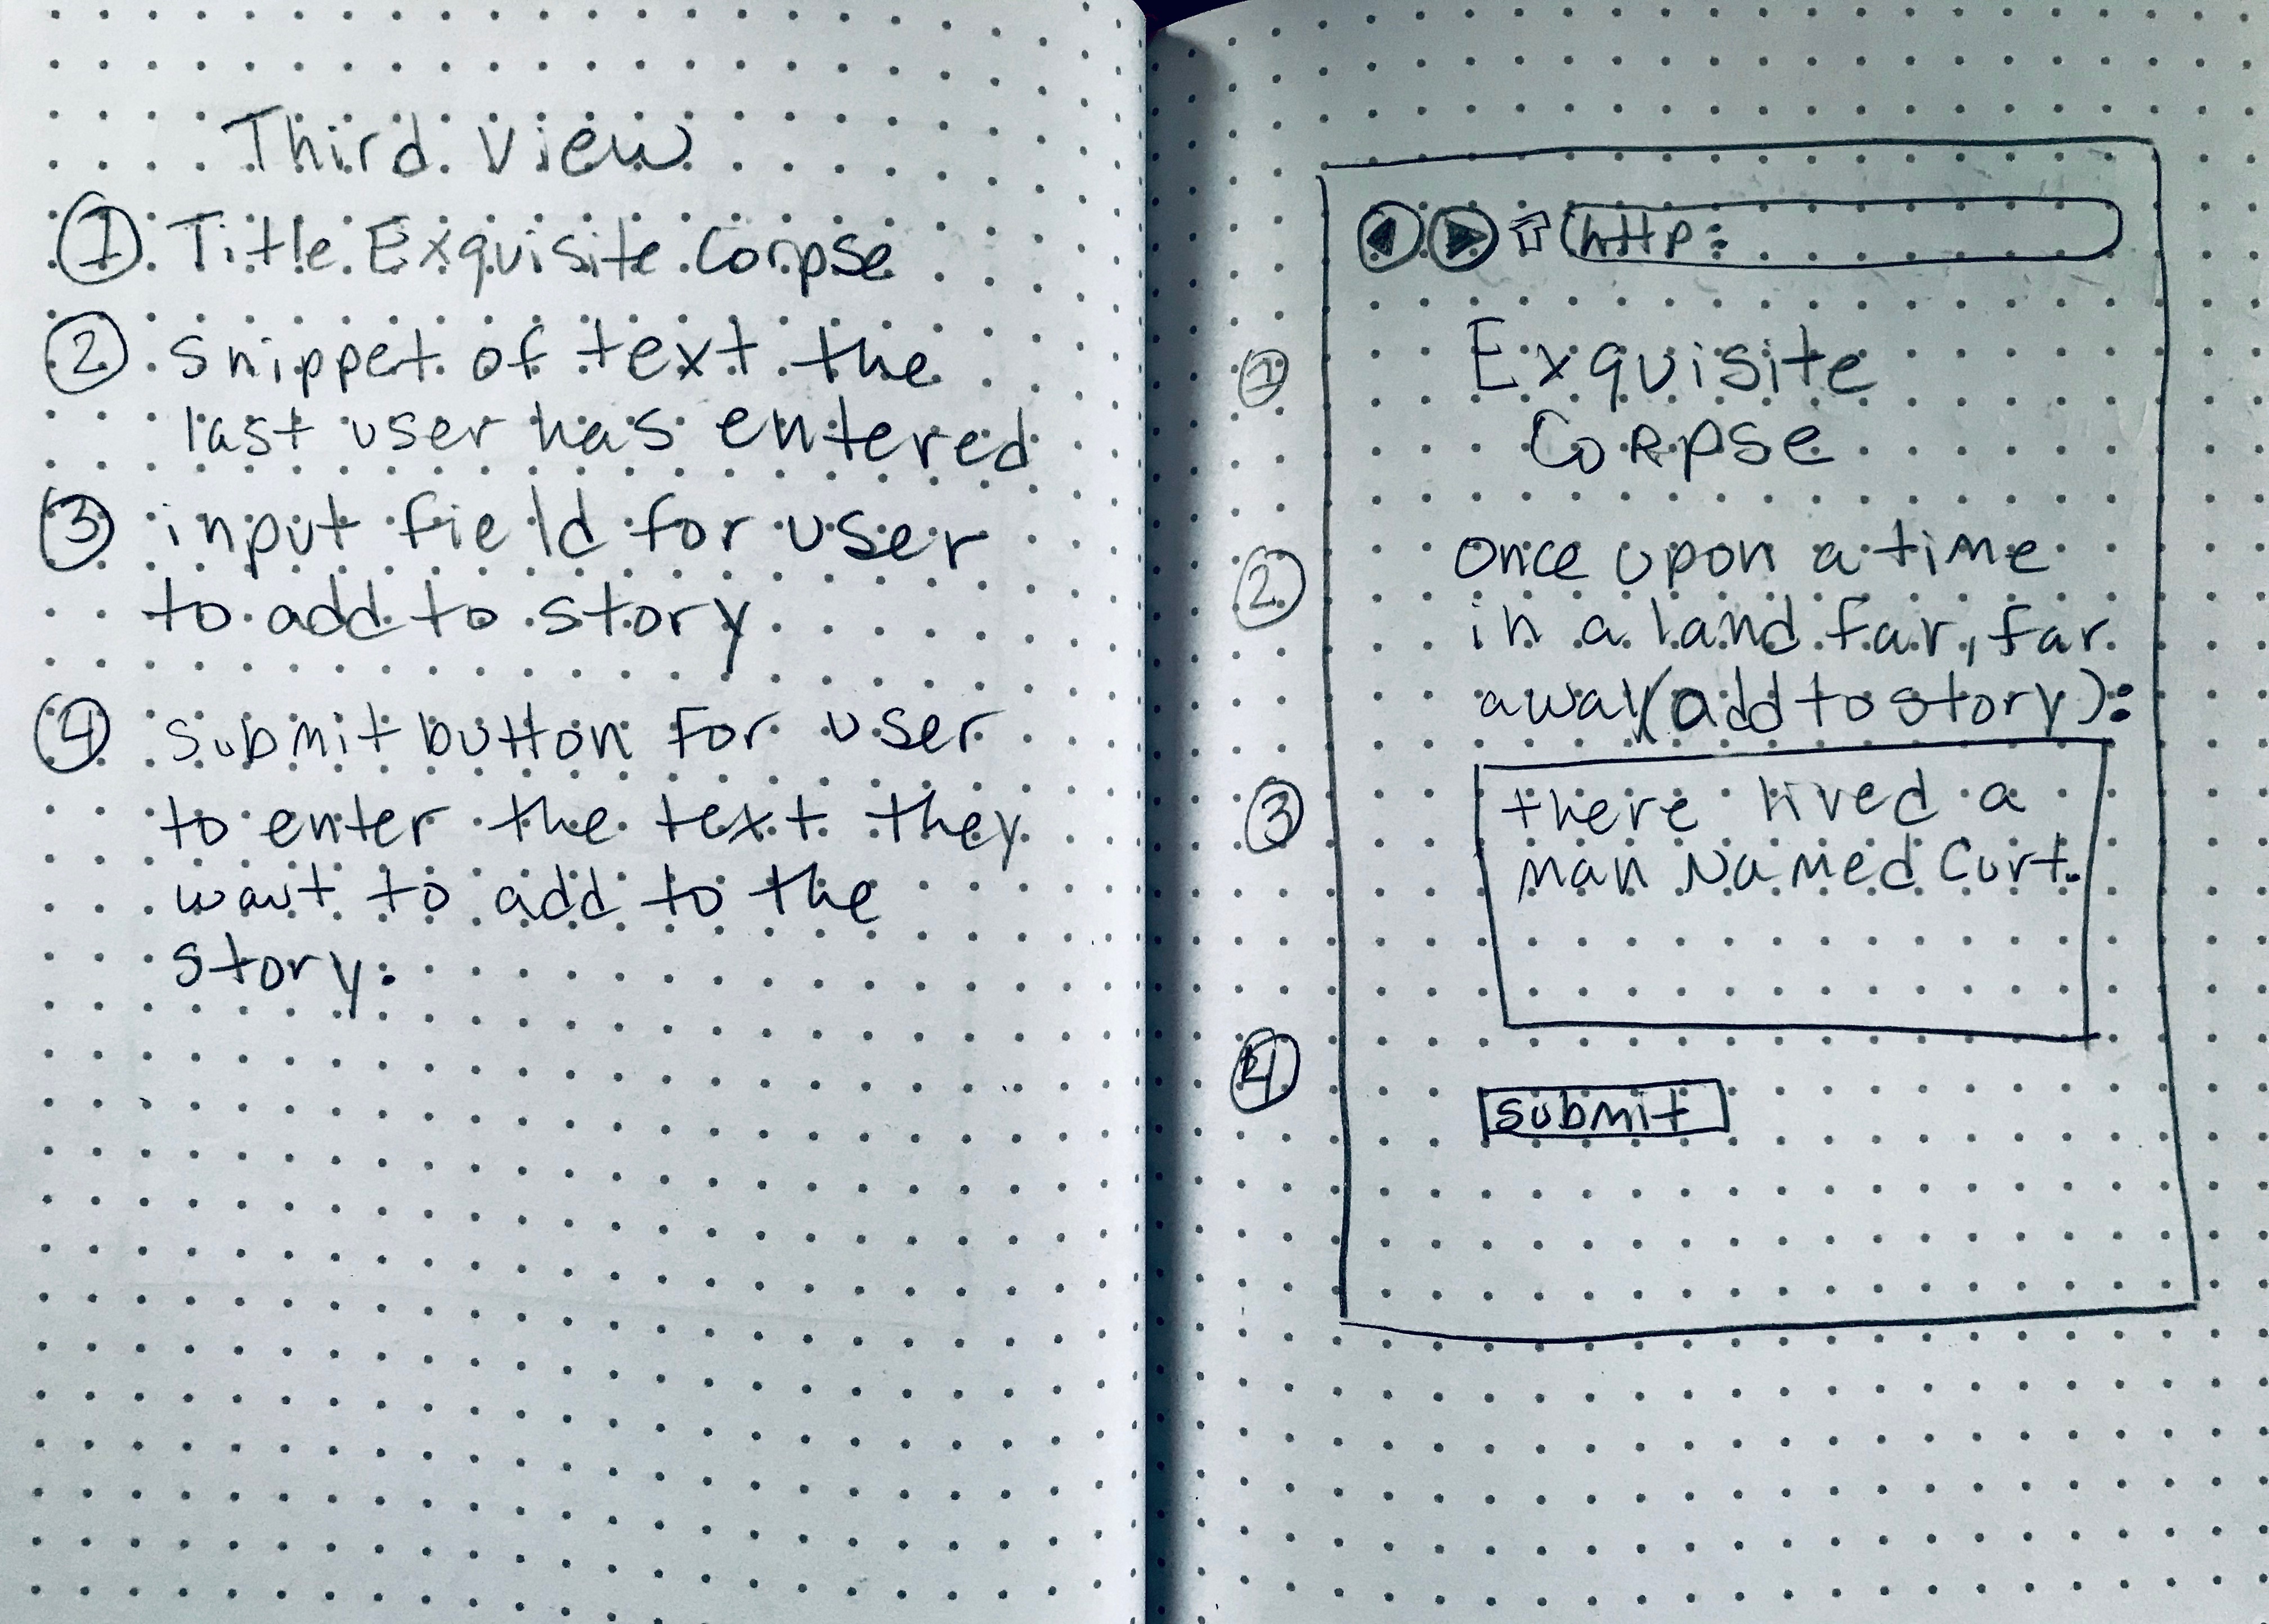 Third View
① Title Exquisite Corpse
② Snippet of text the
last user has entered
③ input field for user
to add to story
④ Submit button For user
to enter the text they
want to add to the
story.
http:
① Exquisite
Corpse
② Once upon a time
in a land far, far
away (add to story):
③ there lived a
man Named Curt.
④ Submit